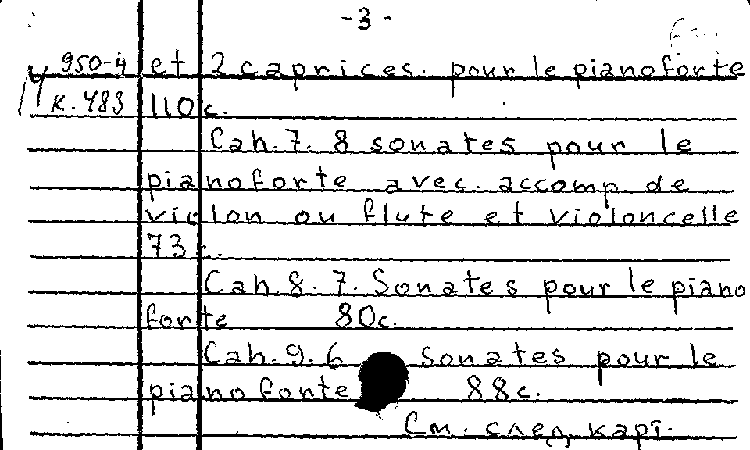 -3-
950-4 et 2 caprices. pour le pianoforte
K.483 110 c.
Cah. 7. 8 sonates pour le
pianoforte avec. accomp. de
violon ou flute et violoncelle
73 c.
Cah. 8. 7. Sonates pour le piano
forte 80c.
Cah. 9. 6 Sonates pour le
pianoforte 88c.
См. след. карт.